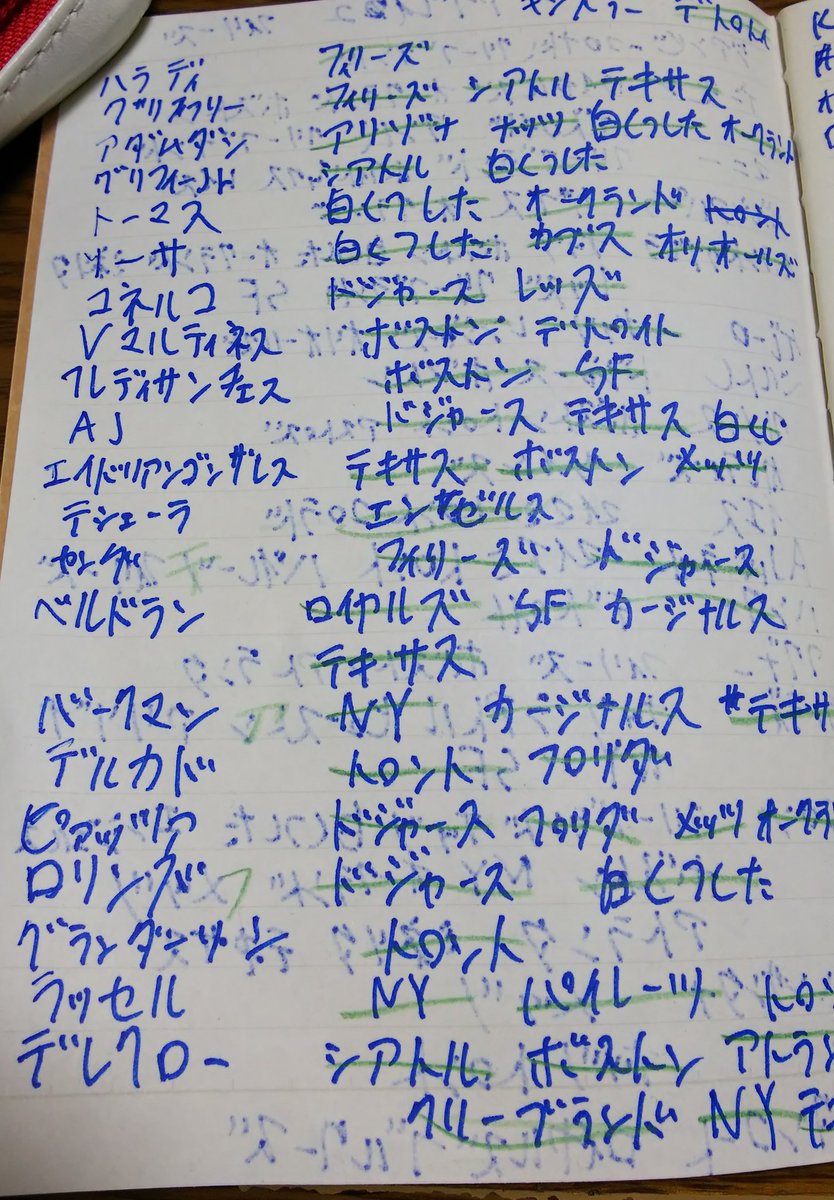 デトロイト
ハラディ フィリーズ
グリフリー フィリーズ シアトル テキサス
アダムダン アリゾナ ナッツ 白くつした オークランド
グリフィーJr シアトル 白くつした
トーマス 白くつした オークランド トロント
ソーサ 白くつした カブス オリオールズ
コネルコ ドジャース レッズ
Vマルティネス ボストン デトロイト
フレディサンチェス ボストン SF
AJ ドジャース テキサス 白くし
エイドリアンゴンザレス テキサス ボストン メッツ
テシェーラ エンゼルス
フィリーズ ドジャース
ベルドラン ロイヤルズ SF カージナルス
テキサス
バークマン NY カージナルス #テキサ
デルカド トロント フロリダ
ピアッツァ ドジャース フロリダ メッツ オークラ
ロリンズ ドジャース 白くつした
グランダーソン トロント
ラッセル NY パイレーツ トロン
デレクロー シアトル ボストン アトラン
クリーブランド NY デ